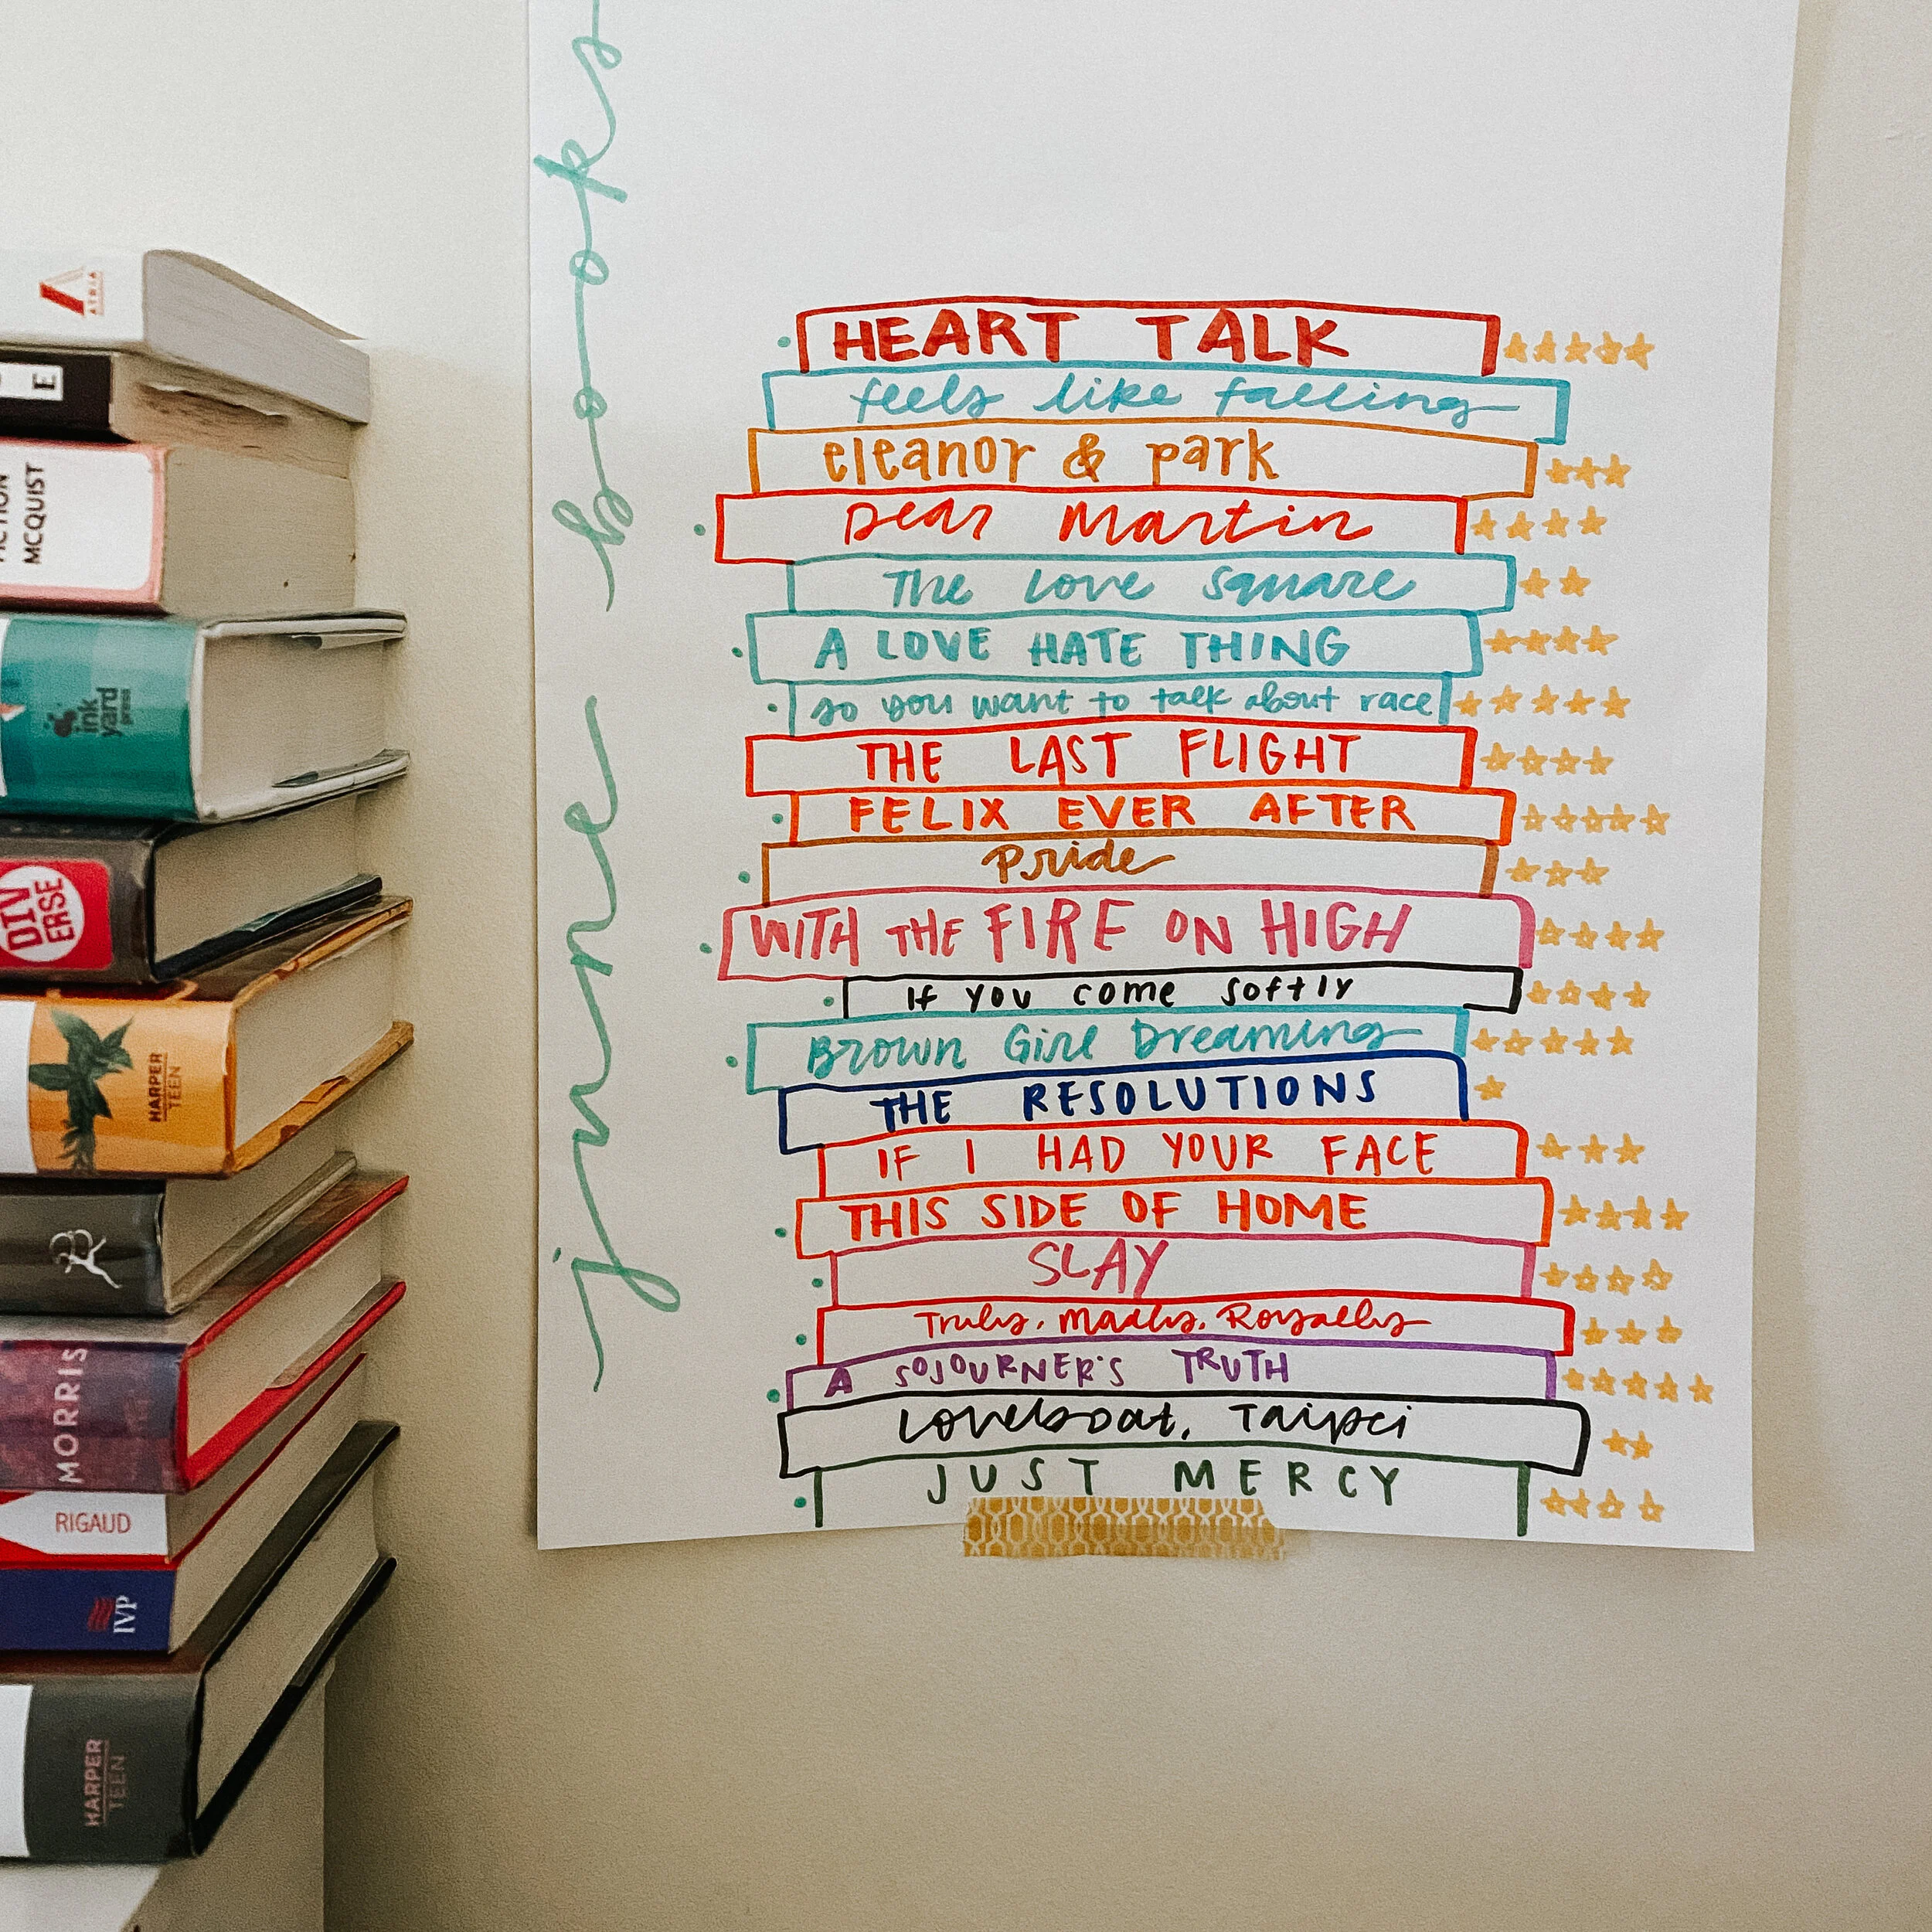 ATRIA
E
MCQUIST
ink
yard
press
DIV
ERSE
HARPER
TEEN
MORRIS
RIGAUD
IVP
HARPER
TEEN
june books
HEART TALK
feels like falling
eleanor & park
Dear Martin
The Love Square
A LOVE HATE THING
so you want to talk about race
THE LAST FLIGHT
FELIX EVER AFTER
Pride
WITH THE FIRE ON HIGH
If you come softly
Brown Girl Dreaming
THE RESOLUTIONS
IF I HAD YOUR FACE
THIS SIDE OF HOME
SLAY
Truly, Madly, Royally
A SOJOURNER'S TRUTH
Loveboat, Taipei
JUST MERCY